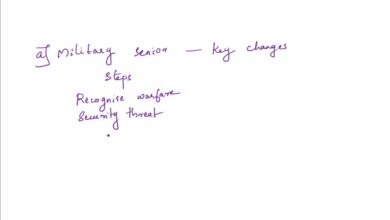 a] Military senior — key changes
Steps
Recognise warfare
Security threat